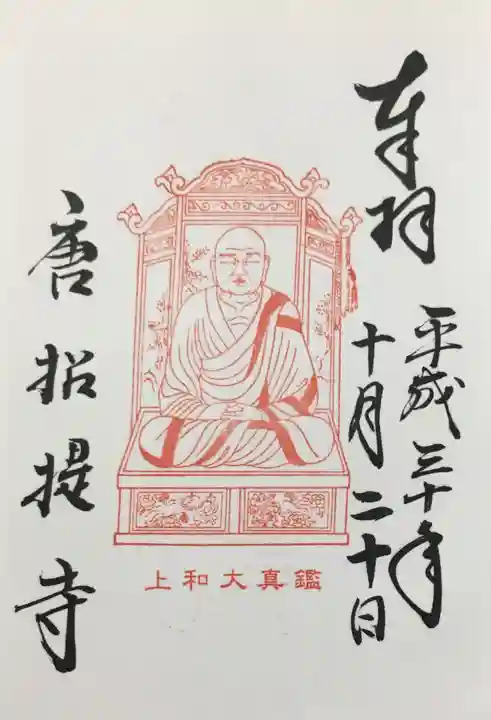 奉拝
平成三十年
十月二十日
上和大真鑑
唐招提寺